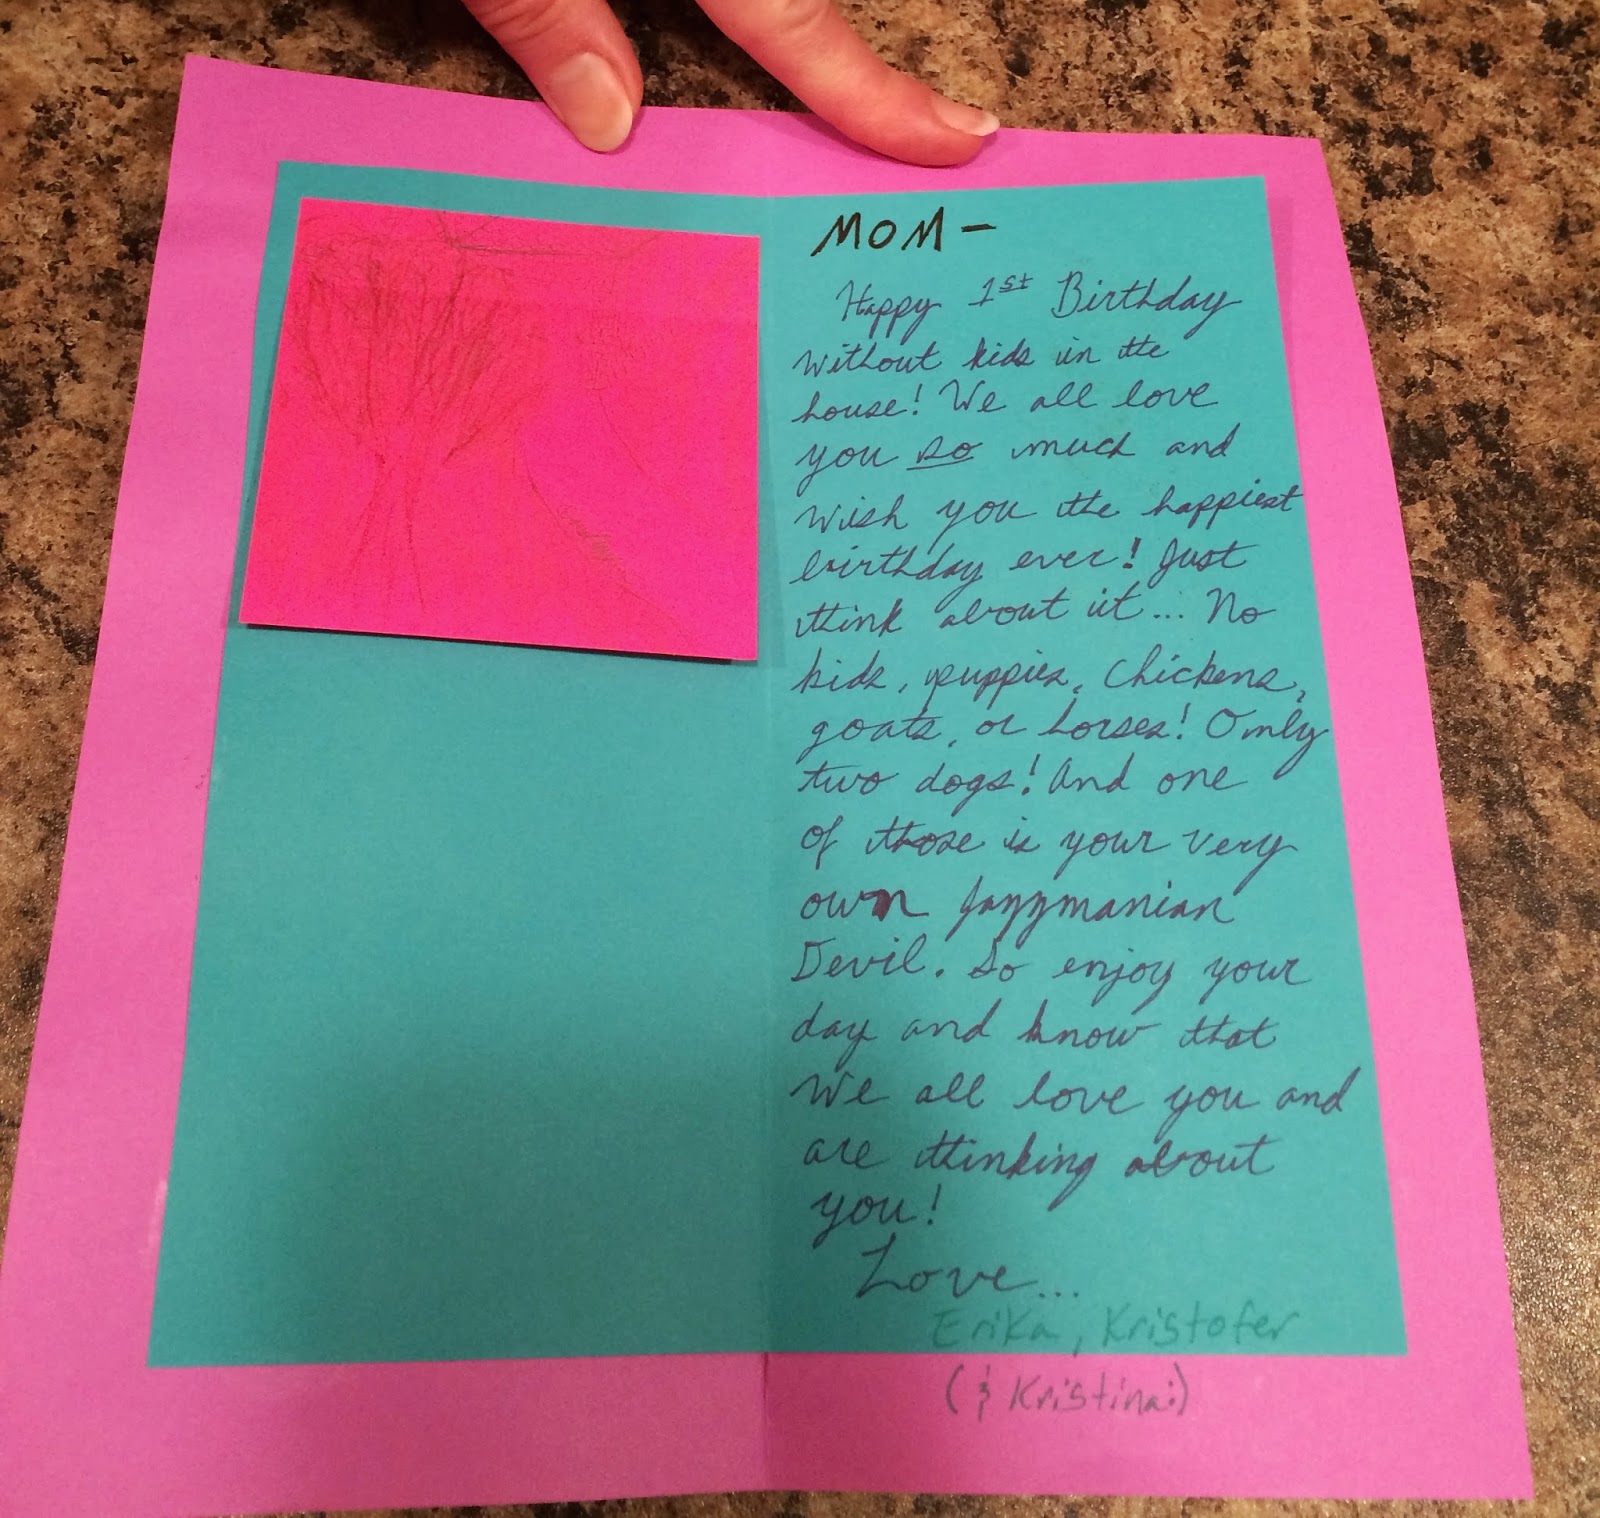 MOM -
Happy 1st Birthday
without kids in the
house! We all love
you so much and
wish you the happiest
birthday ever! Just
think about it... No
kids, puppies, chickens,
goats, or horses! Only
two dogs! And one
of those is your very
own Jazzmanian
Devil. So enjoy your
day and know that
We all love you and
are thinking about
you!
Love...
Erika, Kristofer
(& Kristina:)